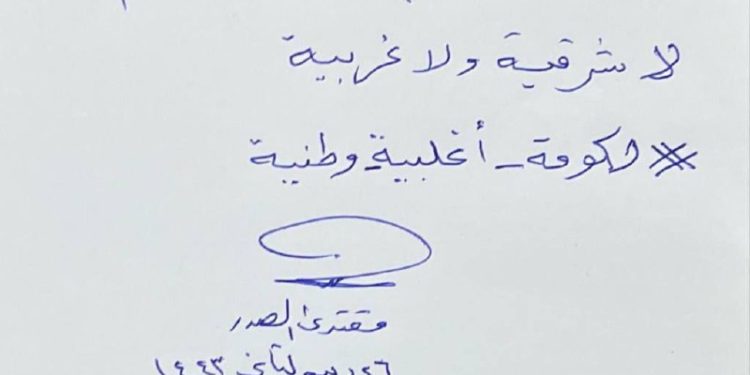 لا شرقية ولا غربية
#حكومة_أغلبية_وطنية
مقتدى الصدر
٢٦ ربيع الثاني ١٤٤٣